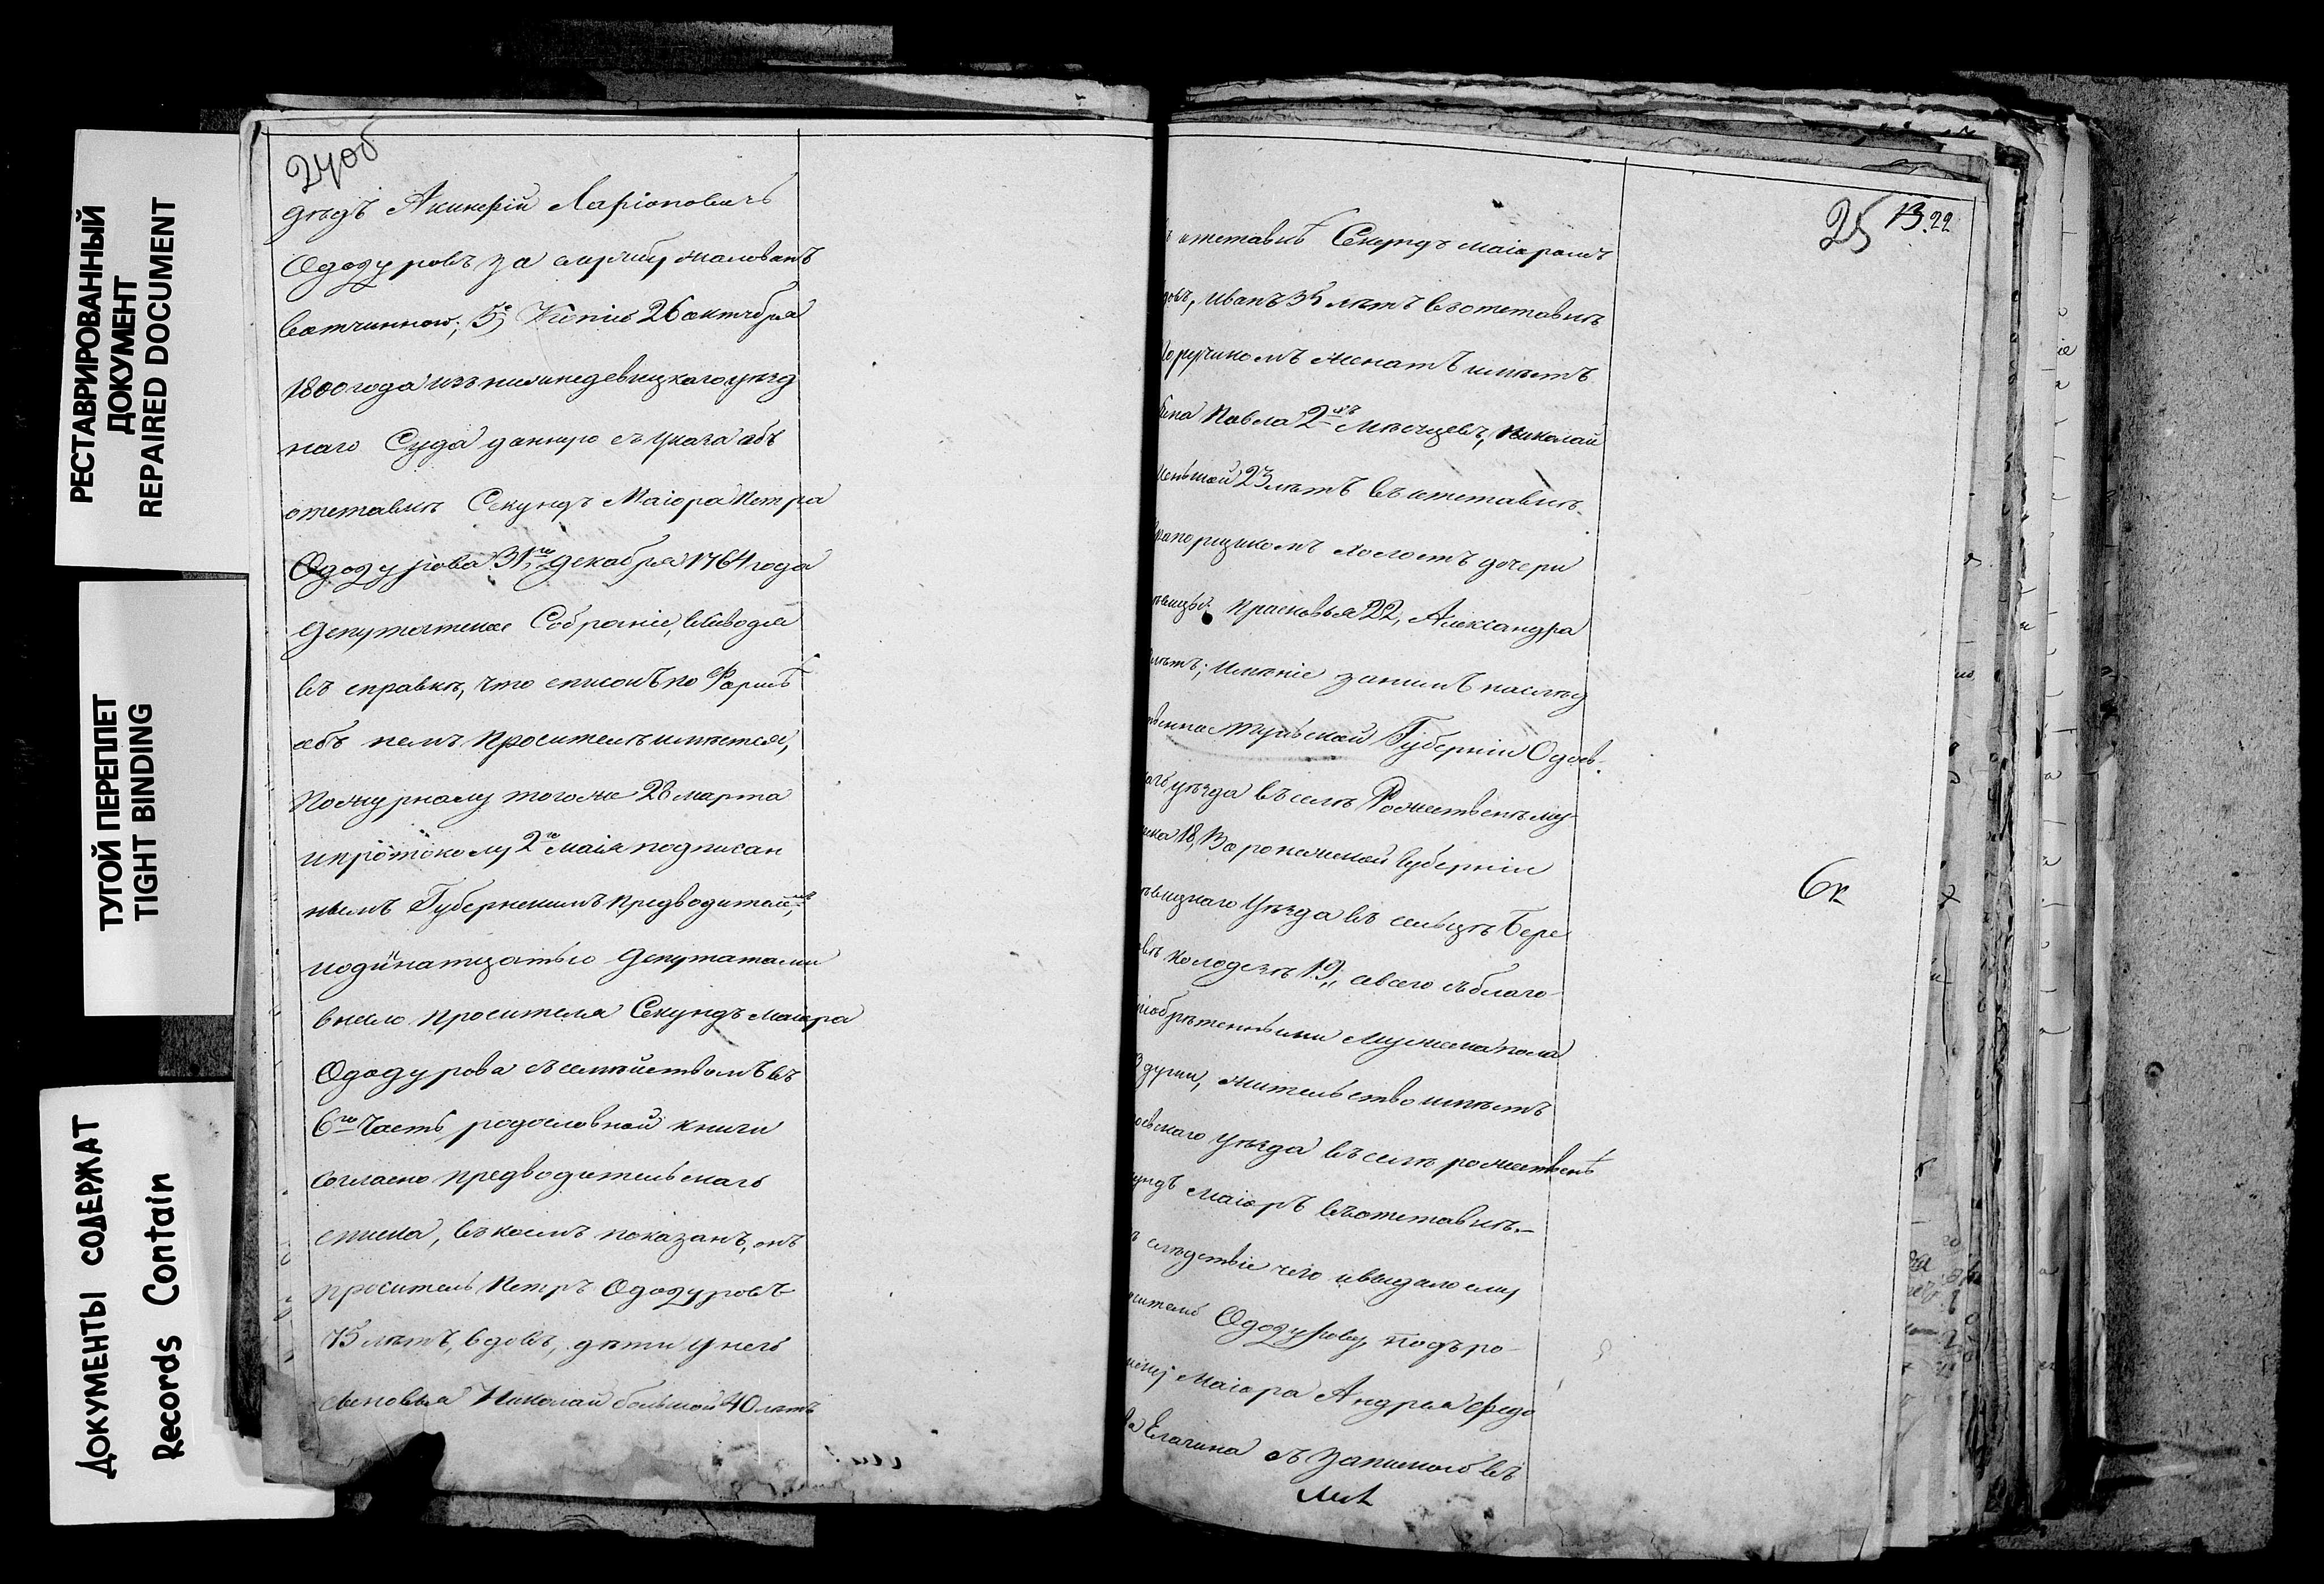 РЕСТАВРИРОВАННЫЙ
ДОКУМЕНТ
REPAIRED DOCUMENT
ТУГОЙ ПЕРЕПЛЕТ
TIGHT BINDING
ДОКУМЕНТЫ СОДЕРЖАТ
Records Contain
24об
дѣдъ Акинфій Ларіоновичь
Ододуровъ за службу жалованъ
вотчиною; 5е, Копію 26 октября
1800 года изъ нижнедевицкаго уезд
наго Суда данную съ указа объ
отставкѣ Секундъ Маіора Петра
Ододурова 31го декабря 1764 года
Депутатское Собраніе, выводя
въ справкѣ, что списокъ по Формѣ
объ немъ просителѣ имѣется,
по журналу тогоже 28 марта
и протоколу 2го маія подписан
нымъ Губернскимъ предводителемъ,
и одинатцатью Депутатами
внесло просителя Секундъ маіора
Ододурова съ семействомъ въ
6ю часть родословной книги
согласно предводительскаго
списка, въ коемъ показанъ, онъ
проситель Петръ Ододуровъ
75 лѣтъ, вдовъ, дѣти у него
сыновья Николай большой 40 лѣтъ
25 13.22
отставкѣ Секундъ маіоромъ
Иванъ 35 лѣтъ въ отставкѣ
Поручикомъ женатъ имѣетъ
сына Павла 2хъ мѣсяцевъ, Николай
меньшой 23 лѣтъ въ отставкѣ
Прапорщикомъ холостъ дочери
девицы: Прасковья 22, Александра
лѣтъ; имѣніе за нимъ наслѣд
ственное тульской Губерніи Одоев-
скаго уѣзда въ селѣ Рожественѣ му-
жеска 18, Воронежской Губерніи
девицкаго Уѣзда въ сельцѣ Бере
колодезѣ 19, а всего съ благо-
пріобрѣтенными мужеска пола
души, жительство имѣетъ
Одоевскаго уѣзда въ селѣ рожественѣ
Секундъ маіоръ въ отставкѣ.
въ слѣдствіе чего и выдало ему
просителю Ододурову, подъ ро-
маіора Андрея Федо
Елагина съ запискою въ
6к